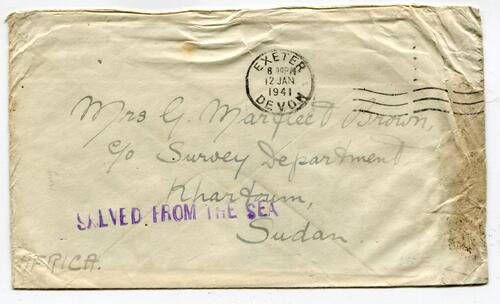 EXETER
12 JAN
1941
DEVON
Mrs G. Marfleet Brown,
c/o Survey Department
Khartoum,
SALVED FROM THE SEA
Sudan.
AFRICA.